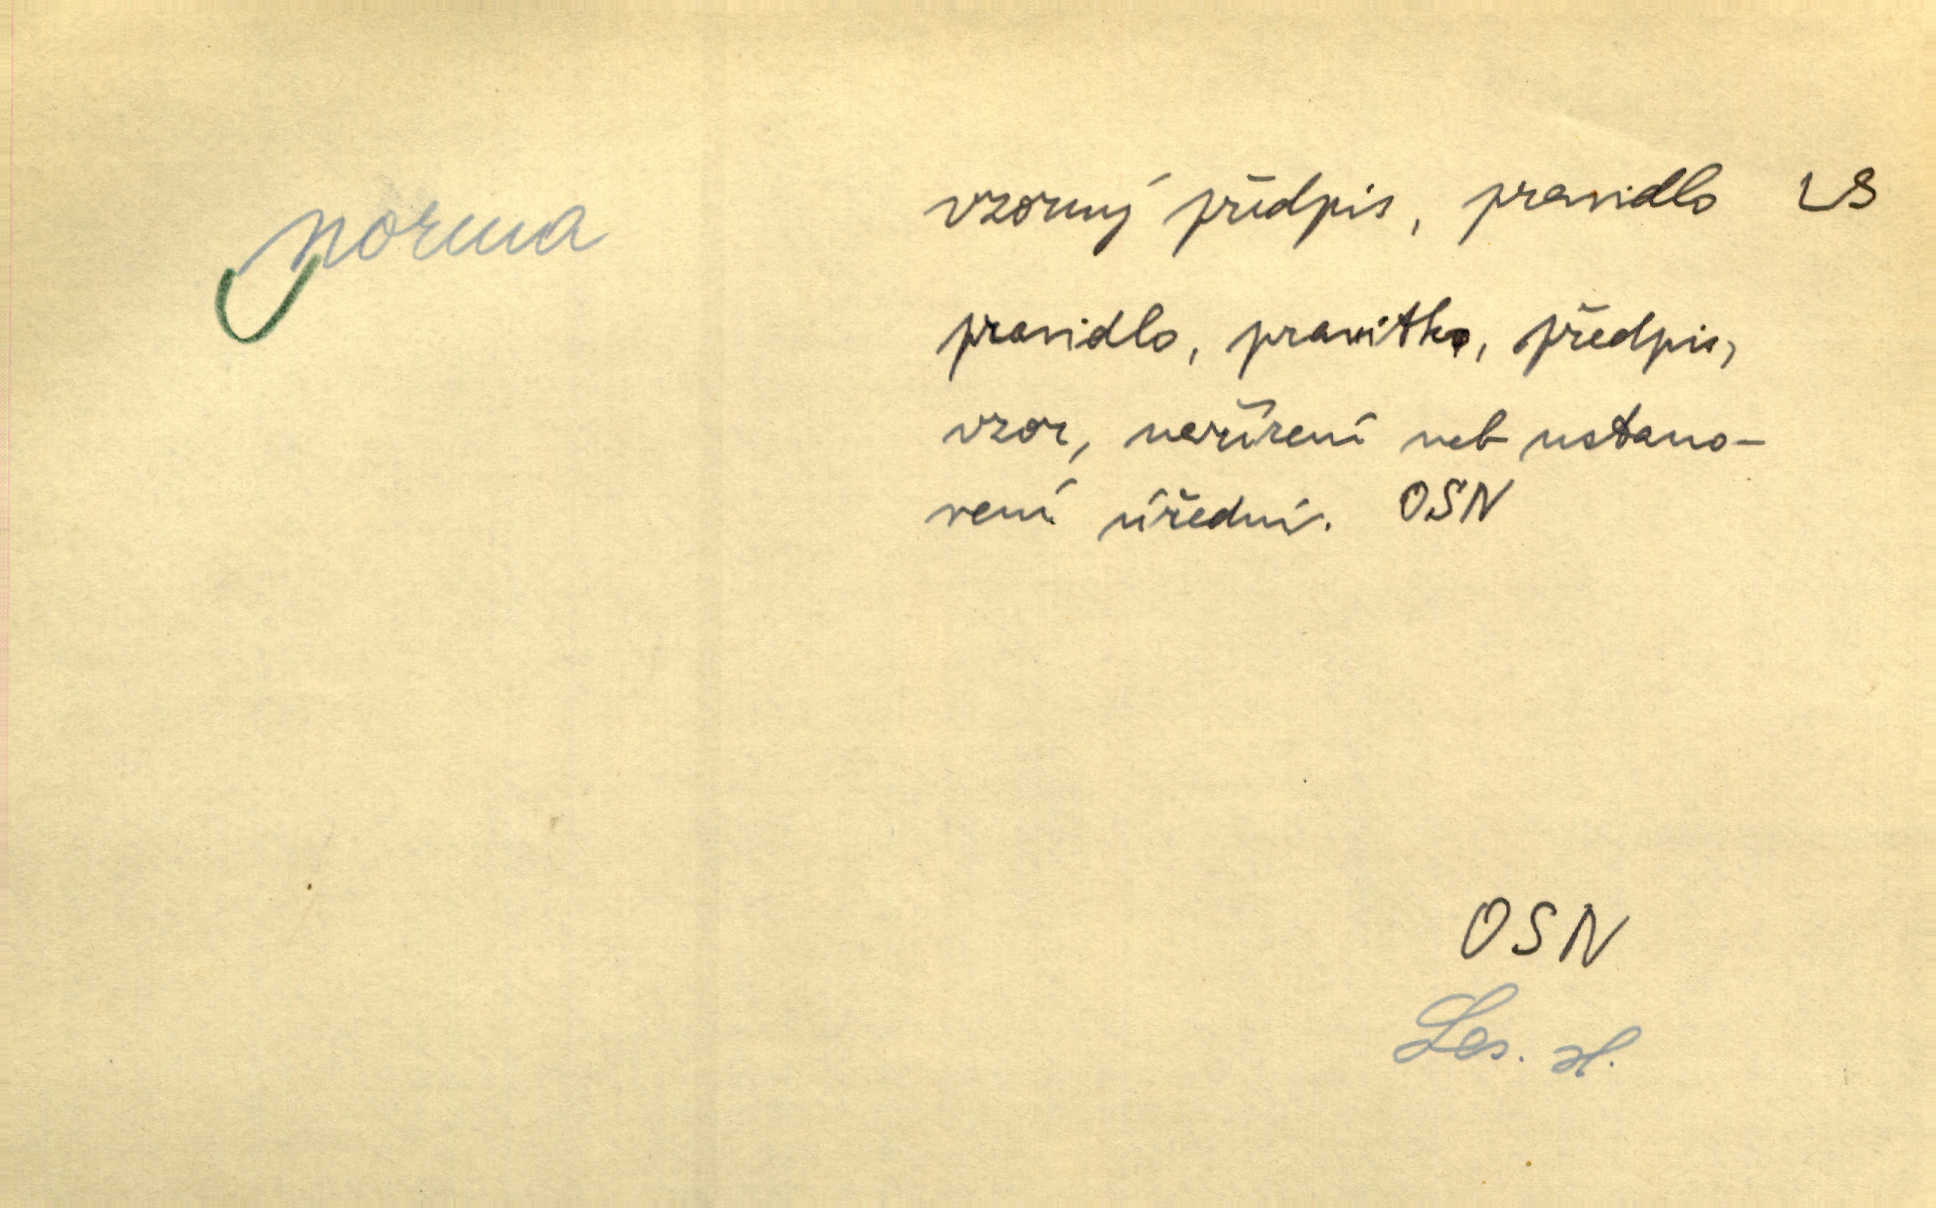 norma
vzorný předpis, pravidlo LS
pravidlo, pravítko, předpis,
vzor, nařízení neb ustano-
vení úřední. OSN
OSN
Les. sl.